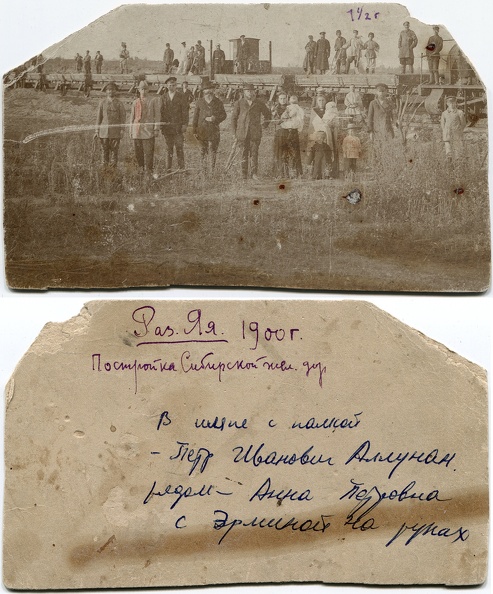 Раз. Яя. 1900 г.
Постройка Сибирской жел. дор
В шляпе с палкой
- Петр Иванович Аллунан.
рядом - Анна Петровна
с Эрминой на руках